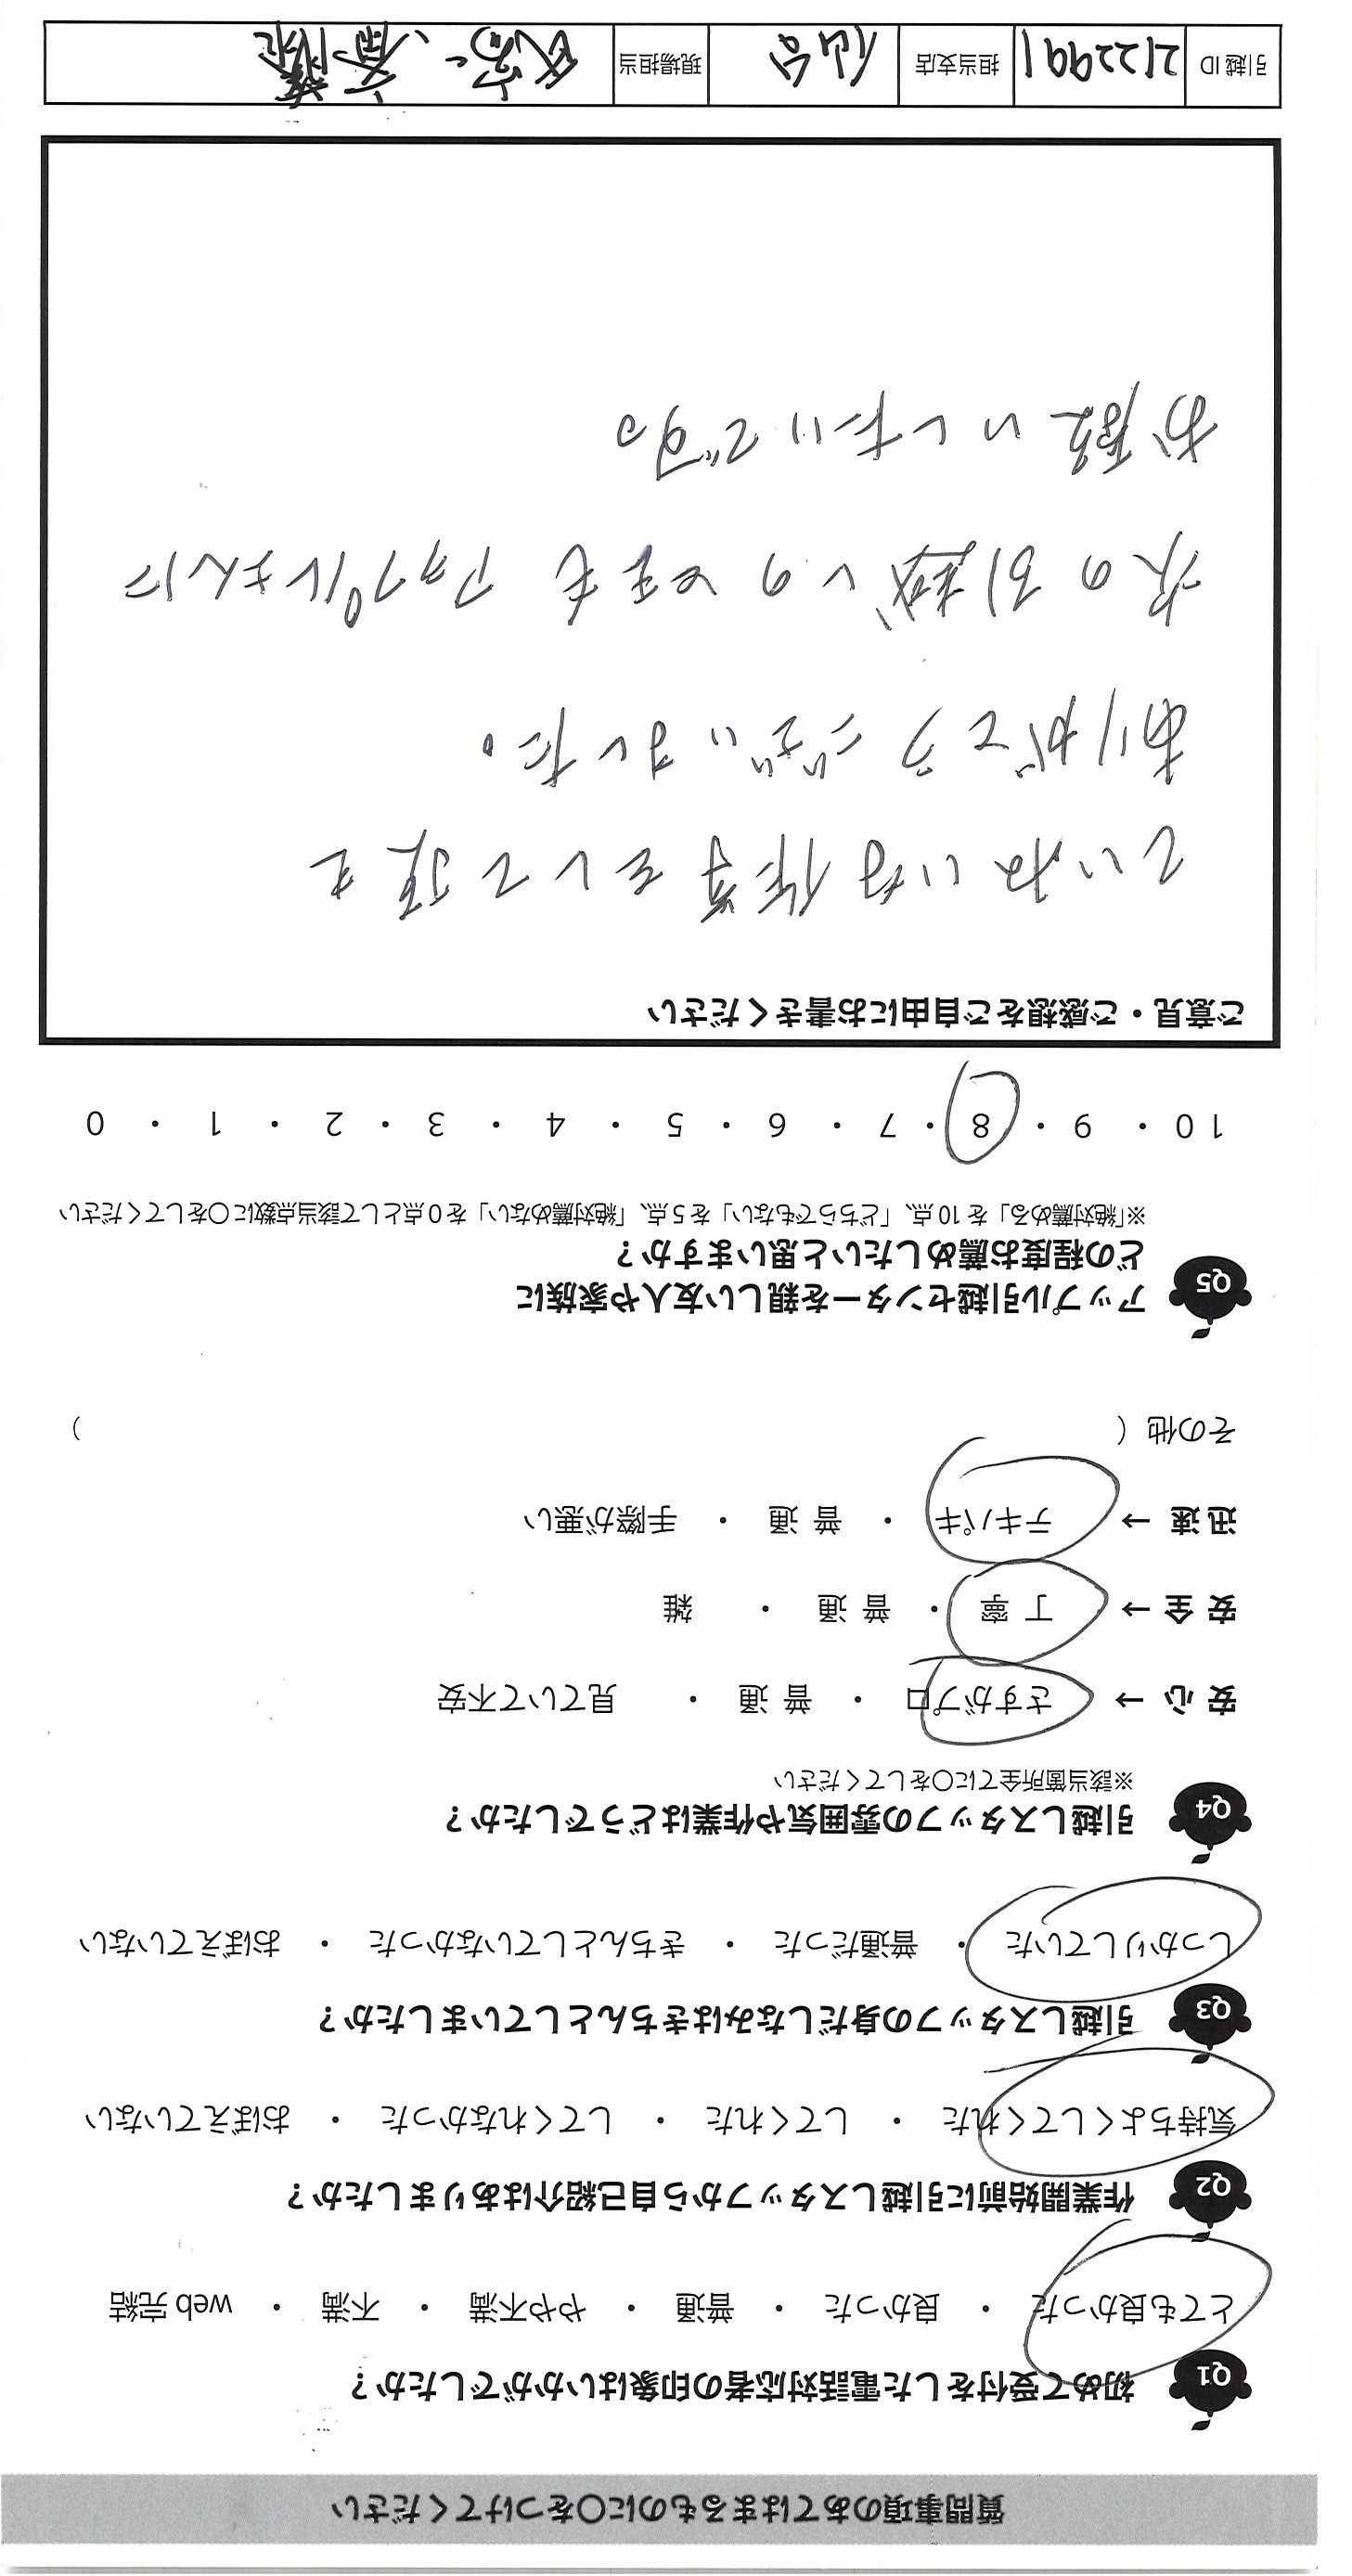 質問事項のあてはまるものに○をつけてください
Q1 初めて受付をした電話対応者の印象はいかがでしたか？
とても良かった ・ 良かった ・ 普通 ・ やや不満 ・ 不満 ・ web 完結
Q2 作業開始前に引越しスタッフから自己紹介はありましたか？
気持ちよくしてくれた ・ してくれた ・ してくれなかった ・ おぼえていない
Q3 引越しスタッフの身だしなみはきちんとしていましたか？
しっかりしていた ・ 普通だった ・ きちんとしていなかった ・ おぼえていない
Q4 引越しスタッフの雰囲気や作業はどうでしたか？
※該当箇所全てに○をしてください
安心 → さすがプロ ・ 普通 ・ 見ていて不安
安全 → 丁寧 ・ 普通 ・ 雑
迅速 → テキパキ ・ 普通 ・ 手際が悪い
その他（ ）
Q5 アップル引越センターを親しい友人や家族に
どの程度お薦めしたいと思いますか？
※「絶対薦める」を 10 点、「どちらでもない」を 5 点、「絶対薦めない」を 0 点として該当点数に○をしてください
10 ・ 9 ・ 8 ・ 7 ・ 6 ・ 5 ・ 4 ・ 3 ・ 2 ・ 1 ・ 0
ご意見・ご感想をご自由にお書きください
ていねいな作業をして頂き
ありがとうございました。
次の引越しのときもアップルさんに
お願いしたいです。
引越 ID 2122991 担当支店 仙台 現場担当